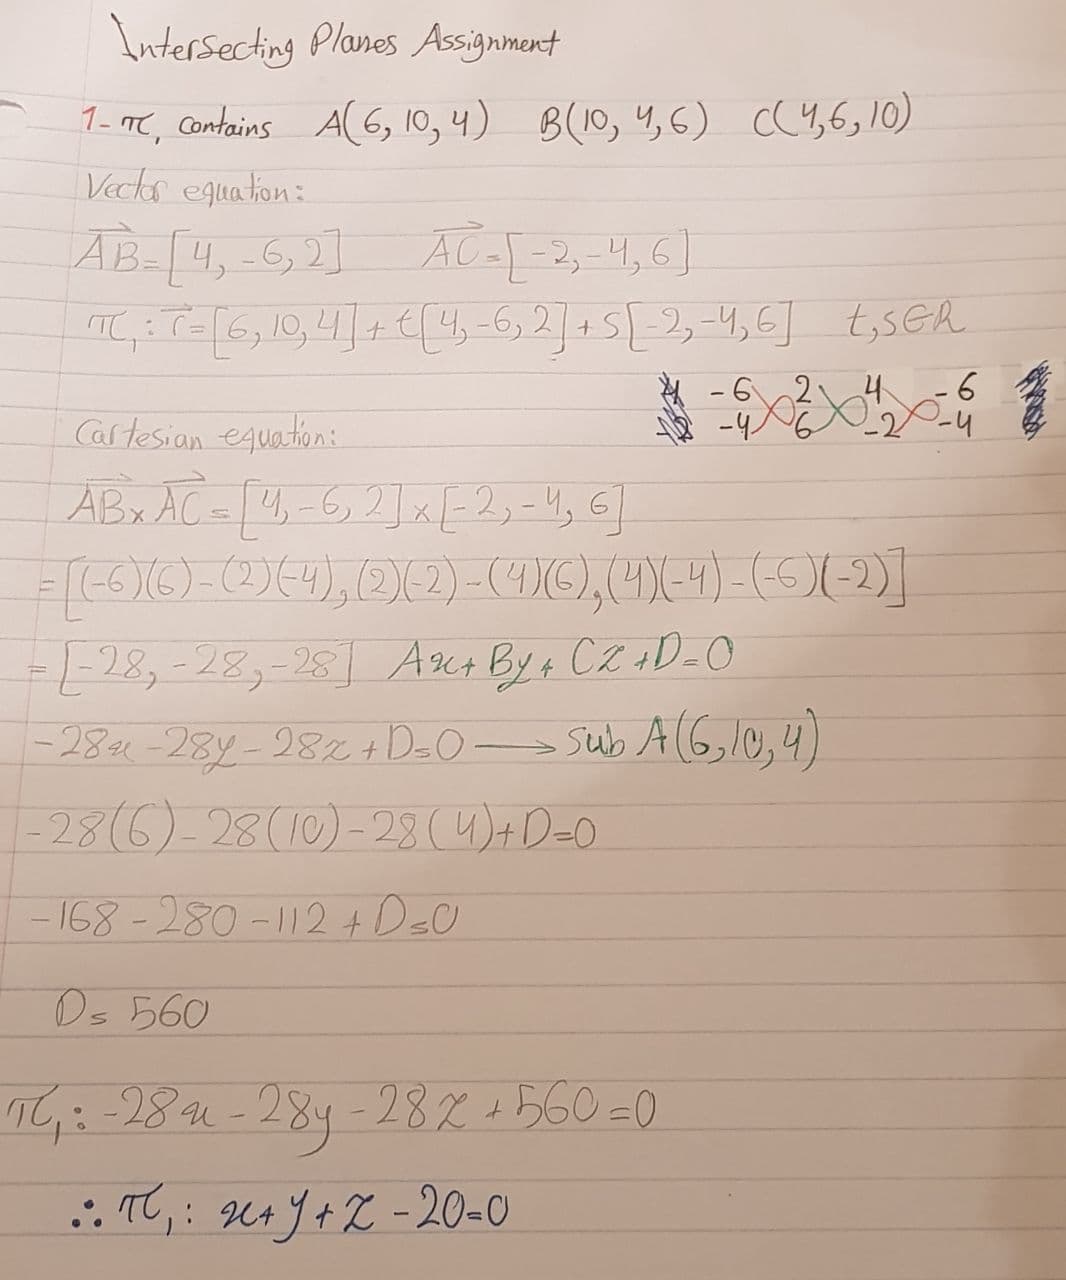 Intersecting Planes Assignment
1- π₁ contains A(6, 10, 4) B(10, 4, 6) C(4, 6, 10)
Vector equation:
→AB = [4, -6, 2] →AC = [-2, -4, 6]
π₁: →r = [6, 10, 4] + t[4, -6, 2] + s[-2, -4, 6] t, s ∈ R
-6 2 4 -6
-4 6 -2 -4
Cartesian equation:
→AB x →AC = [4, -6, 2] x [-2, -4, 6]
= [(-6)(6) - (2)(-4), (2)(-2) - (4)(6), (4)(-4) - (-6)(-2)]
= [-28, -28, -28] Ax + By + Cz + D = 0
-28x - 28y - 28z + D = 0 → sub A(6, 10, 4)
-28(6) - 28(10) - 28(4) + D = 0
-168 - 280 - 112 + D = 0
D = 560
π₁: -28x - 28y - 28z + 560 = 0
∴ π₁: x + y + z - 20 = 0